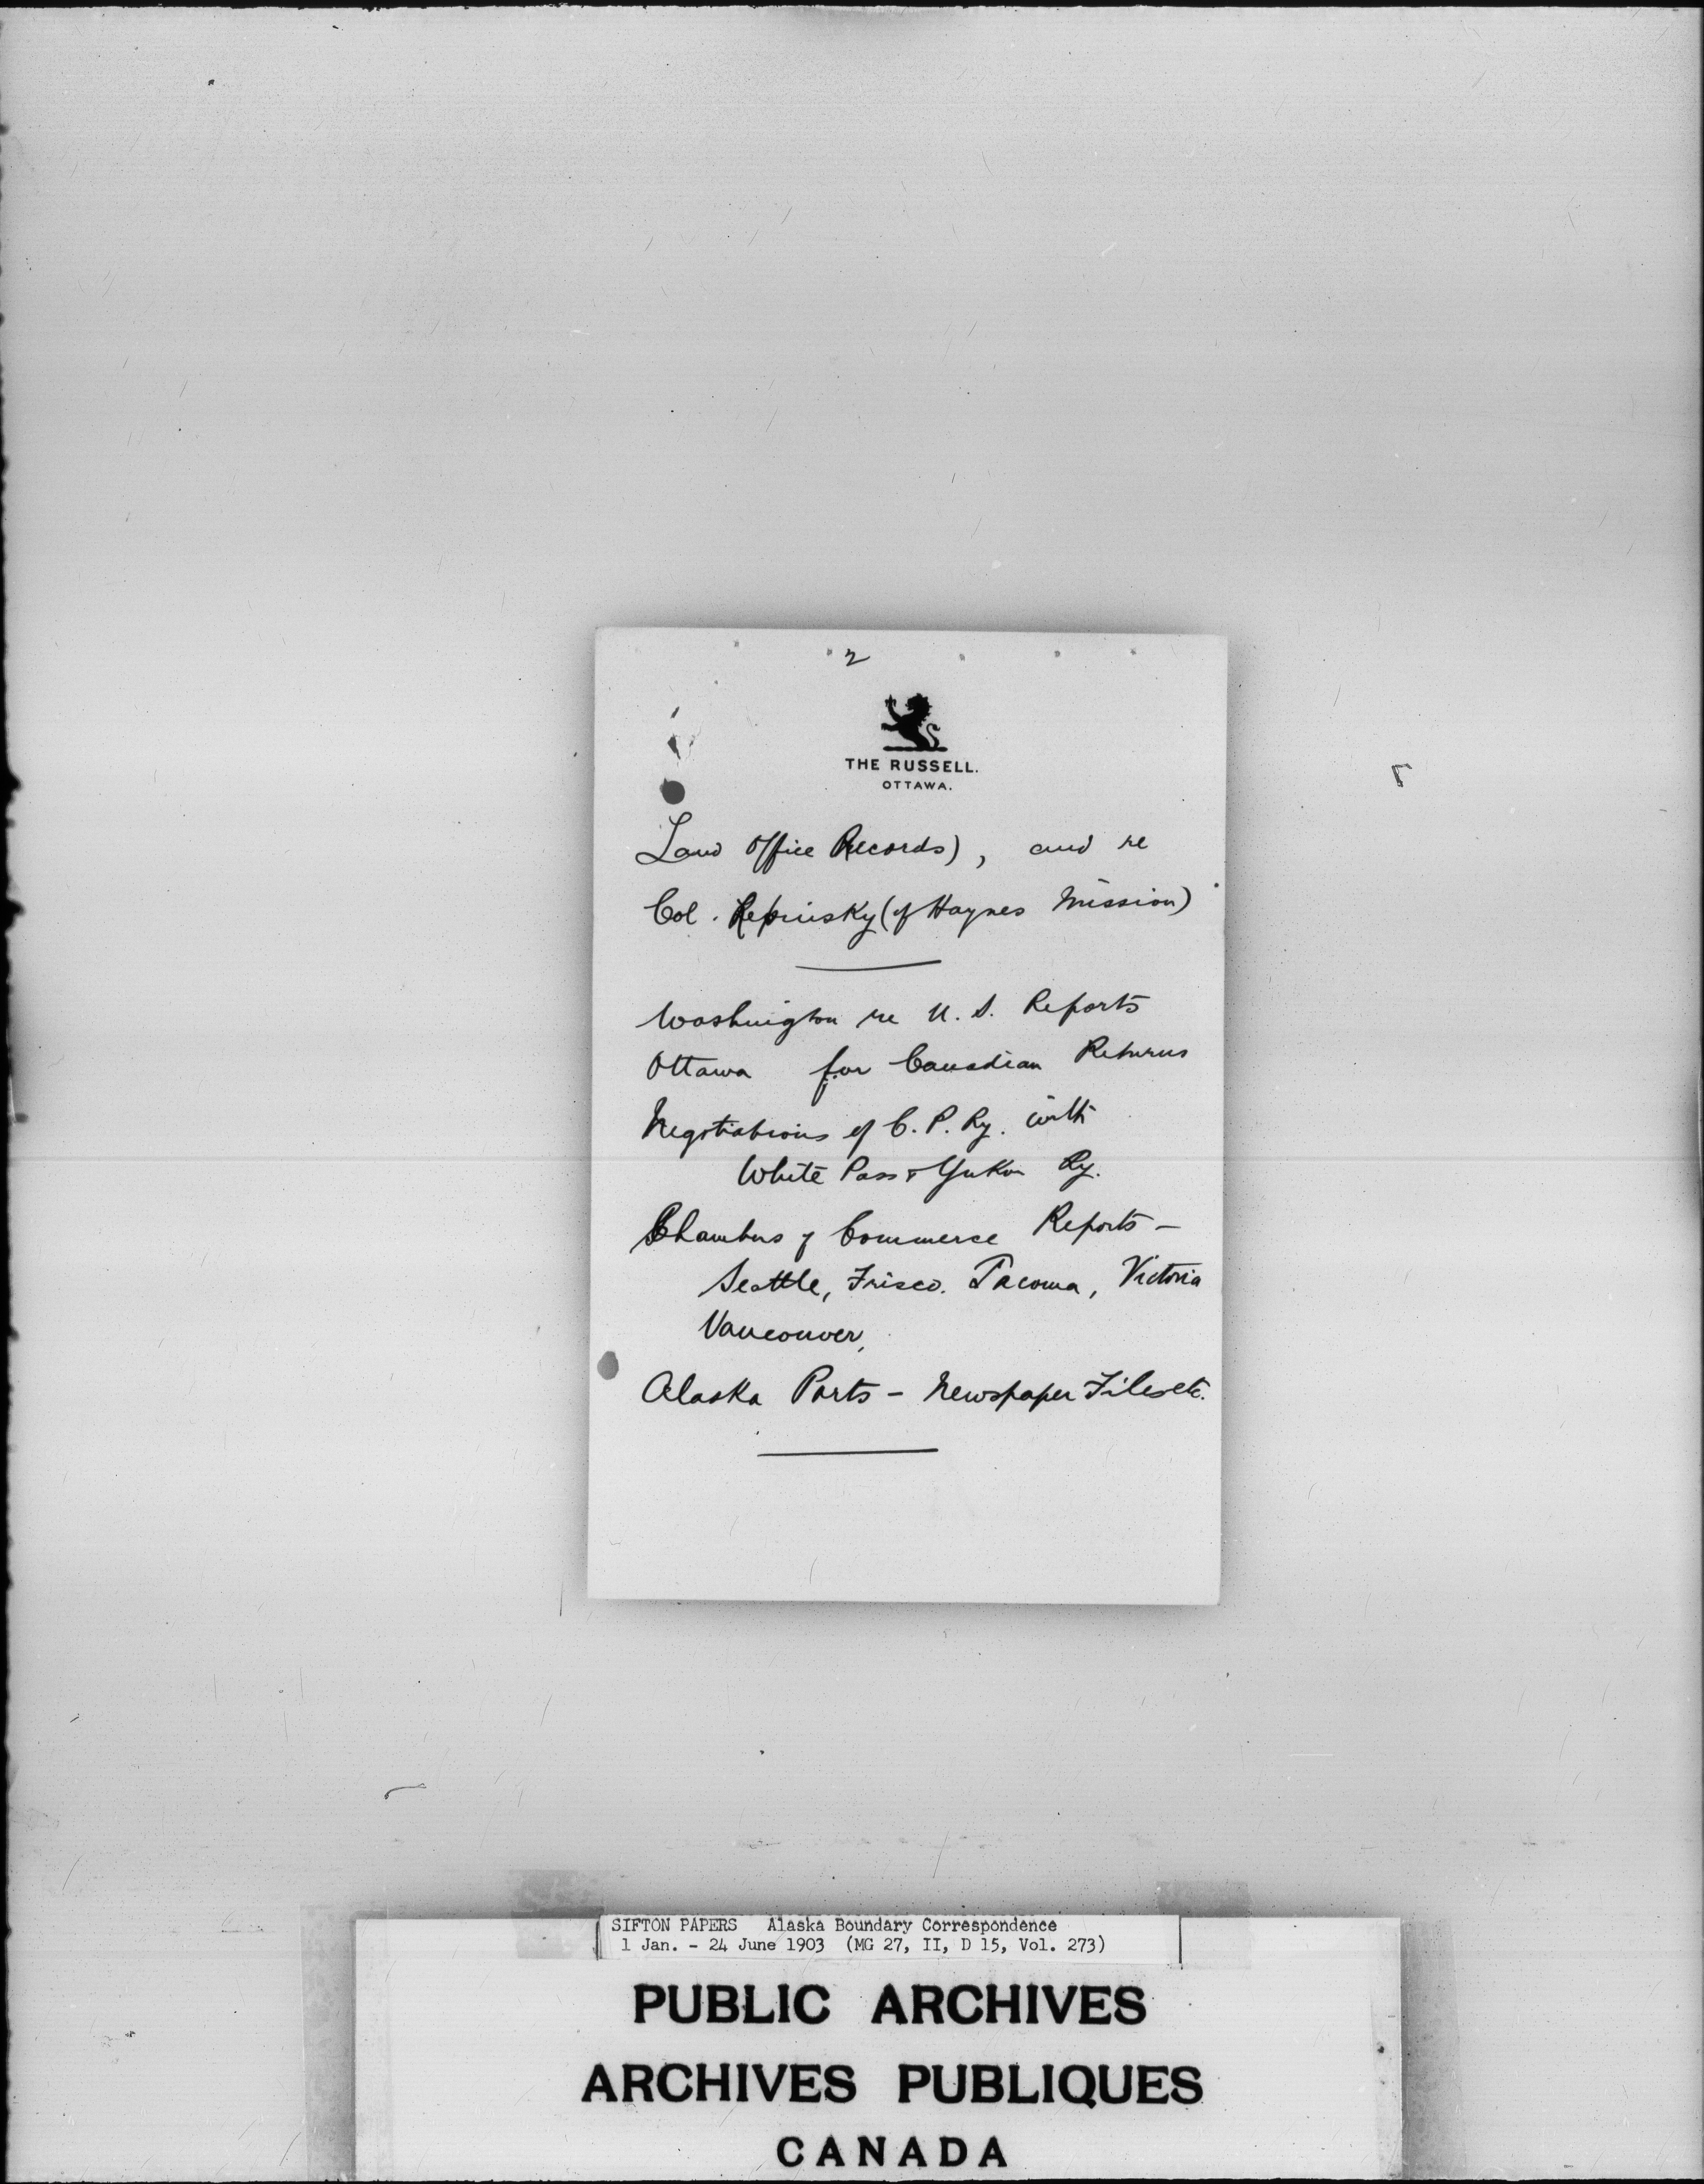 2
THE RUSSELL.
OTTAWA.
Land Office Records), and re
Col. Repinsky (of Haynes Mission)
Washington re U.S. Reports
Ottawa for Canadian Returns
Negotiations of C.P.Ry. with
White Pass & Yukon Ry.
Chambers of Commerce Reports —
Seattle, Frisco. Tacoma, Victoria
Vancouver,
Alaska Ports — Newspaper Files etc.
SIFTON PAPERS Alaska Boundary Correspondence
1 Jan. - 24 June 1903 (MG 27, II, D 15, Vol. 273)
PUBLIC ARCHIVES
ARCHIVES PUBLIQUES
CANADA